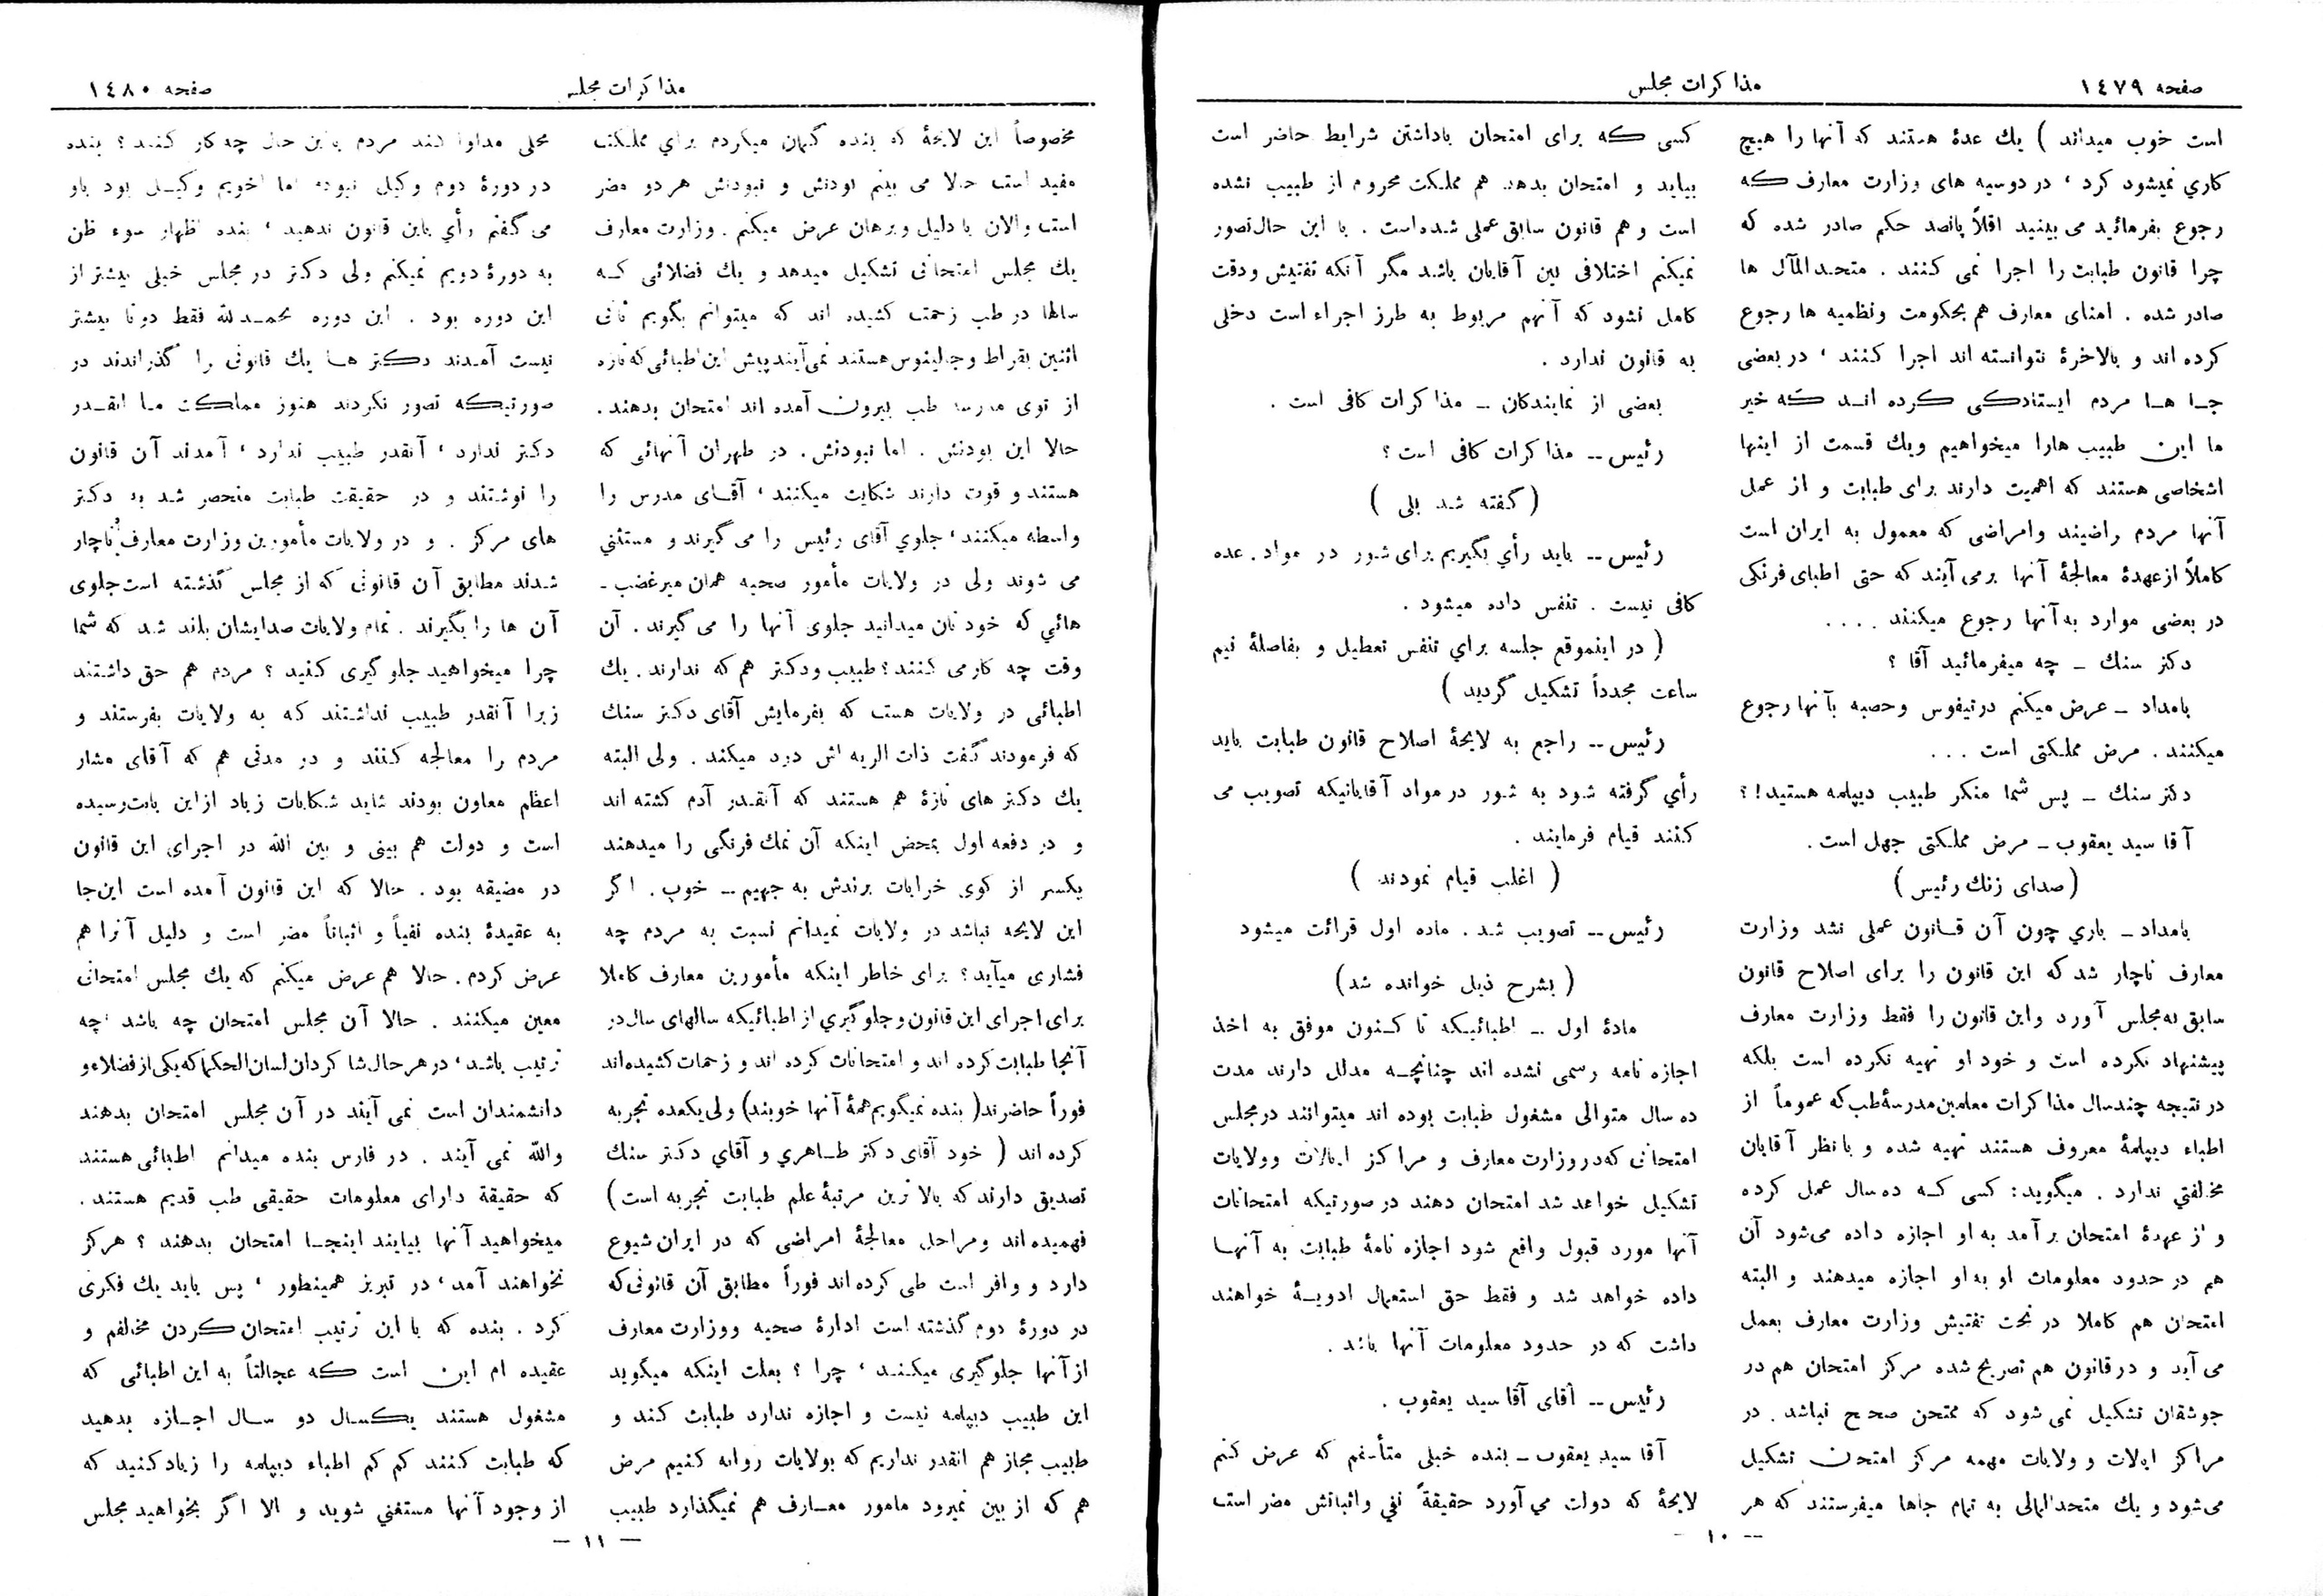 صفحه ١٤٧٩
مذاکرات مجلس
است خوب میداند ) یك عدهٔ هستند که آنها را هیچ
کاري نمیشود کرد ، در دوسیه های وزارت معارف که
رجوع بفرمائید می بینید اقلاً پانصد حکم صادر شده که
چرا قانون طبابت را اجرا نمی کنند . متحدالمآل ها
صادر شده . امنای معارف هم بحکومت ونظمیه ها رجوع
کرده اند و بالاخرهٔ نتوانسته اند اجرا کنند ، در بعضی
جا ها مردم ایستادکی کرده اند که خیر
ما این طبیب هارا میخواهیم ویك قسمت از اینها
اشخاصی هستند که اهمیت دارند برای طبابت و از عمل
آنها مردم راضیند وامراضی که معمول به ایران است
کاملاً ازعهدهٔ معالجهٔ آنها برمی آیند که حتی اطبای فرنکی
در بعضی موارد به آنها رجوع میکنند . . . .
دکتر سنك ــ چه میفرمائید آقا ؟
بامداد ــ عرض میکنم درتیفوس وحصبه بآنها رجوع
میکنند . مرض مملکتی است . . .
دکتر سنك ــ پس شما منکر طبیب دیپلمه هستید!؟
آقا سید یعقوب ــ مرض مملکتی جهل است .
( صدای زنك رئیس )
بامداد ــ باري چون آن قانون عملی نشد وزارت
معارف ناچار شد که این قانون را برای اصلاح قانون
سابق به مجلس آورد واین قانون را فقط وزارت معارف
پیشنهاد نکرده است و خود او تهیه نکرده است بلکه
در نتیجه چندسال مذاکرات معلمین مدرسهٔ طب که عموماً از
اطباء دیپلمهٔ معروف هستند تهیه شده و با نظر آقایان
مخالفتي ندارد . میگوید : کسی که ده سال عمل کرده
و از عهدهٔ امتحان بر آمد به او اجازه داده می شود آن
هم در حدود معلومات او به او اجازه میدهند و البته
امتحان هم کاملا در تحت تفتیش وزارت معارف بعمل
می آید و در قانون هم تصریح شده مرکز امتحان هم در
جوشقان تشکیل نمی شود که ممتحن صحیح نباشد . در
مراکز ایالات و ولایات مهمه مرکز امتحان تشکیل
می شود و یك متحدالمالی به تمام جاها میفرستند که هر
کسی که برای امتحان باداشتن شرایط حاضر است
بیاید و امتحان بدهد هم مملکت محروم از طبیب نشده
است و هم قانون سابق عملی شده است . با این حال تصور
نمیکنم اختلافی بین آقایان باشد مگر آنکه تفتیش ودقت
کامل نشود که آنهم مربوط به طرز اجراء است دخلی
به قانون ندارد .
بعضی از نمایندکان ــ مذاکرات کافی است .
رئیس ــ مذاکرات کافی است ؟
( گفته شد بلی )
رئیس ــ باید رأي بگیریم برای شور در مواد . عده
کافی نیست . تنفس داده میشود .
( در اینموقع جلسه براي تنفس تعطیل و بفاصلهٔ نیم
ساعت مجدداً تشکیل گردید )
رئیس ــ راجع به لایحهٔ اصلاح قانون طبابت باید
رأي گرفته شود به شور در مواد آقایانیکه تصویب می
کنند قیام فرمایند .
( اغلب قیام نمودند )
رئیس ــ تصویب شد . ماده اول قرائت میشود
( بشرح ذیل خوانده شد )
مادهٔ اول ــ اطبائیکه تا کنون موفق به اخذ
اجازه نامه رسمی نشده اند چنانچه مدلل دارند مدت
ده سال متوالی مشغول طبابت بوده اند میتوانند در مجلس
امتحانی که در وزارت معارف و مراکز ایالات وولایات
تشکیل خواهد شد امتحان دهند در صورتیکه امتحانات
آنها مورد قبول واقع شود اجازه نامهٔ طبابت به آنها
داده خواهد شد و فقط حق استعمال ادویهٔ خواهند
داشت که در حدود معلومات آنها باشد .
رئیس ــ آقای آقا سید یعقوب .
آقا سید یعقوب ــ بنده خیلی متأسفم که عرض کنم
لایحهٔ که دولت می آورد حقیقهً نفي واثباتش مضر است
ــ ١٠ ــ
مذاکرات مجلس
صفحه ١٤٨٠
مخصوصاً این لایحهٔ که بنده گمان میکردم براي مملکت
مفید است حالا می بینم بودنش و نبودنش هر دو مضر
است والان با دلیل وبرهان عرض میکنم . وزارت معارف
یك مجلس امتحانی تشکیل میدهد و یك فضلائی که
سالها در طب زحمت کشیده اند که میتوانم بگویم ثانی
اثنین بقراط وجالینوس هستند نمی آیند پیش این اطبائی که تازه
از توی مدرسه طب بیرون آمده اند امتحان بدهند .
حالا این بودنش . اما نبودنش . در طهران آنهائی که
هستند و قوت دارند شکایت میکنند ، آقای مدرس را
واسطه میکنند ، جلوي آقای رئیس را می گیرند و مستثنی
می شوند ولی در ولایات مأمور صحیه همان میرغضب ــ
هائی که خود تان میدانید جلوی آنها را می گیرند . آن
وقت چه کار می کنند ؟ طبیب و دکتر هم که ندارند . یك
اطبائی در ولایات هست که بفرمایش آقای دکتر سنك
که فرمودند گفت ذات الریه اش درد میکند . ولی البته
یك دکتر های تازهٔ هم هستند که آنقدر آدم کشته اند
و در دفعه اول بمحض اینکه آن نمك فرنگی را میدهند
یکسر از کوی خرابات برندش به جهیم ــ خوب . اگر
این لایحه نباشد در ولایات نمیدانم نسبت به مردم چه
فشاری میآید ؟ برای خاطر اینکه مأمورین معارف کاملا
برای اجرای این قانون و جلوگیري از اطبائیکه سالهای سال در
آنجا طبابت کرده اند و امتحانات کرده اند و زحمات کشیده اند
فوراً حاضرند ( بنده نمیگویم همهٔ آنها خوبند ) ولی یکعده تجربه
کرده اند ( خود آقای دکتر طاهري و آقاي دکتر سنك
تصدیق دارند که بالا ترین مرتبهٔ علم طبابت تجربه است )
فهمیده اند ومراحل معالجهٔ امراضی که در ایران شیوع
دارد و وافر است طی کرده اند فوراً مطابق آن قانونی که
در دورهٔ دوم گذشته است ادارهٔ صحیه ووزارت معارف
از آنها جلوگیری میکنند ، چرا ؟ بعلت اینکه میگوید
این طبیب دیپلمه نیست و اجازه ندارد طبابت کند و
طبیب مجاز هم انقدر نداریم که بولایات روانه کنیم مرض
هم که از بین نمیرود مامور معارف هم نمیگذارد طبیب
محلی مداوا کند مردم با این حال چه کار کنند ؟ بنده
در دورهٔ دوم وکیل نبودم اما اخویم وکیل بود باو
می گفتم رأي باین قانون ندهید ، بنده اظهار سوء ظن
به دورهٔ دویم نمیکنم ولی دکتر در مجلس خیلی بیشتر از
این دوره بود . این دوره بحمدلله فقط دوتا بیشتر
نیست آمدند دکتر ها یك قانونی را گذراندند در
صورتیکه تصور نکردند هنوز مملکت ما انقدر
دکتر ندارد ، آنقدر طبیب ندارد ، آمدند آن قانون
را نوشتند و در حقیقت طبابت منحصر شد به دکتر
های مرکز . و در ولایات مأمورین وزارت معارف ناچار
شدند مطابق آن قانونی که از مجلس گذشته است جلوی
آن ها را بگیرند . تمام ولایات صدایشان بلند شد که شما
چرا میخواهید جلوگیری کنید ؟ مردم هم حق داشتند
زیرا آنقدر طبیب نداشتند که به ولایات بفرستند و
مردم را معالجه کنند و در مدتی هم که آقای مشار
اعظم معاون بودند شاید شکایات زیاد از این بابت رسیده
است و دولت هم بینی و بین الله در اجرای این قانون
در مضیقه بود . حالا که این قانون آمده است این جا
به عقیدهٔ بنده نفیاً و اثباتاً مضر است و دلیل آنرا هم
عرض کردم . حالا هم عرض میکنم که یك مجلس امتحانی
معین میکنند . حالا آن مجلس امتحان چه باشد چه
ترتیب باشد ، در هر حال شاکردان لسان الحکما که یکی از فضلاء و
دانشمندان است نمی آیند در آن مجلس امتحان بدهند
والله نمی آیند . در فارس بنده میدانم اطبائی هستند
که حقیقة دارای معلومات حقیقی طب قدیم هستند .
میخواهید آنها بیایند اینجا امتحان بدهند ؟ هرکز
نخواهند آمد ، در تبریز همینطور ، پس باید یك فکری
کرد . بنده که با این ترتیب امتحان کردن مخالفم و
عقیده ام این است که عجالتاً به این اطبائی که
مشغول هستند یکسال دو سال اجازه بدهید
که طبابت کنند کم کم اطباء دیپلمه را زیاد کنید که
از وجود آنها مستغني شوید و الا اگر بخواهید مجلس
ــ ١١ ــ